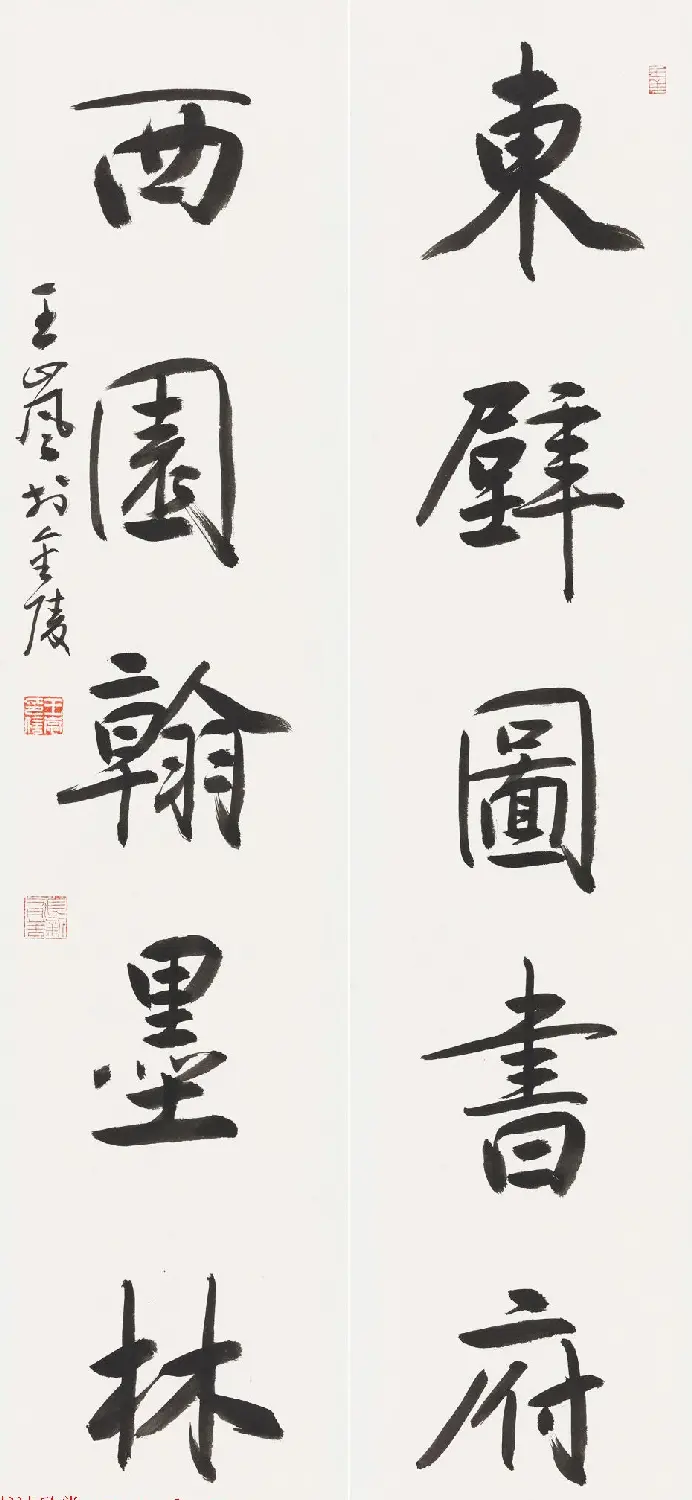 東壁圖書府
西園翰墨林
王嵐於金陵